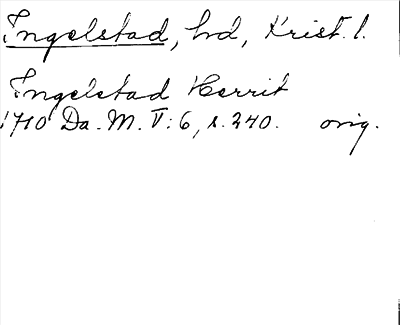 Ingelstad, hd, Krist. l.
Ingelstad Herrit
1710 Da. M. V: 6, s. 240. orig.